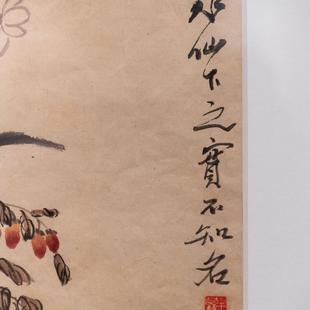 仙下之實不知名